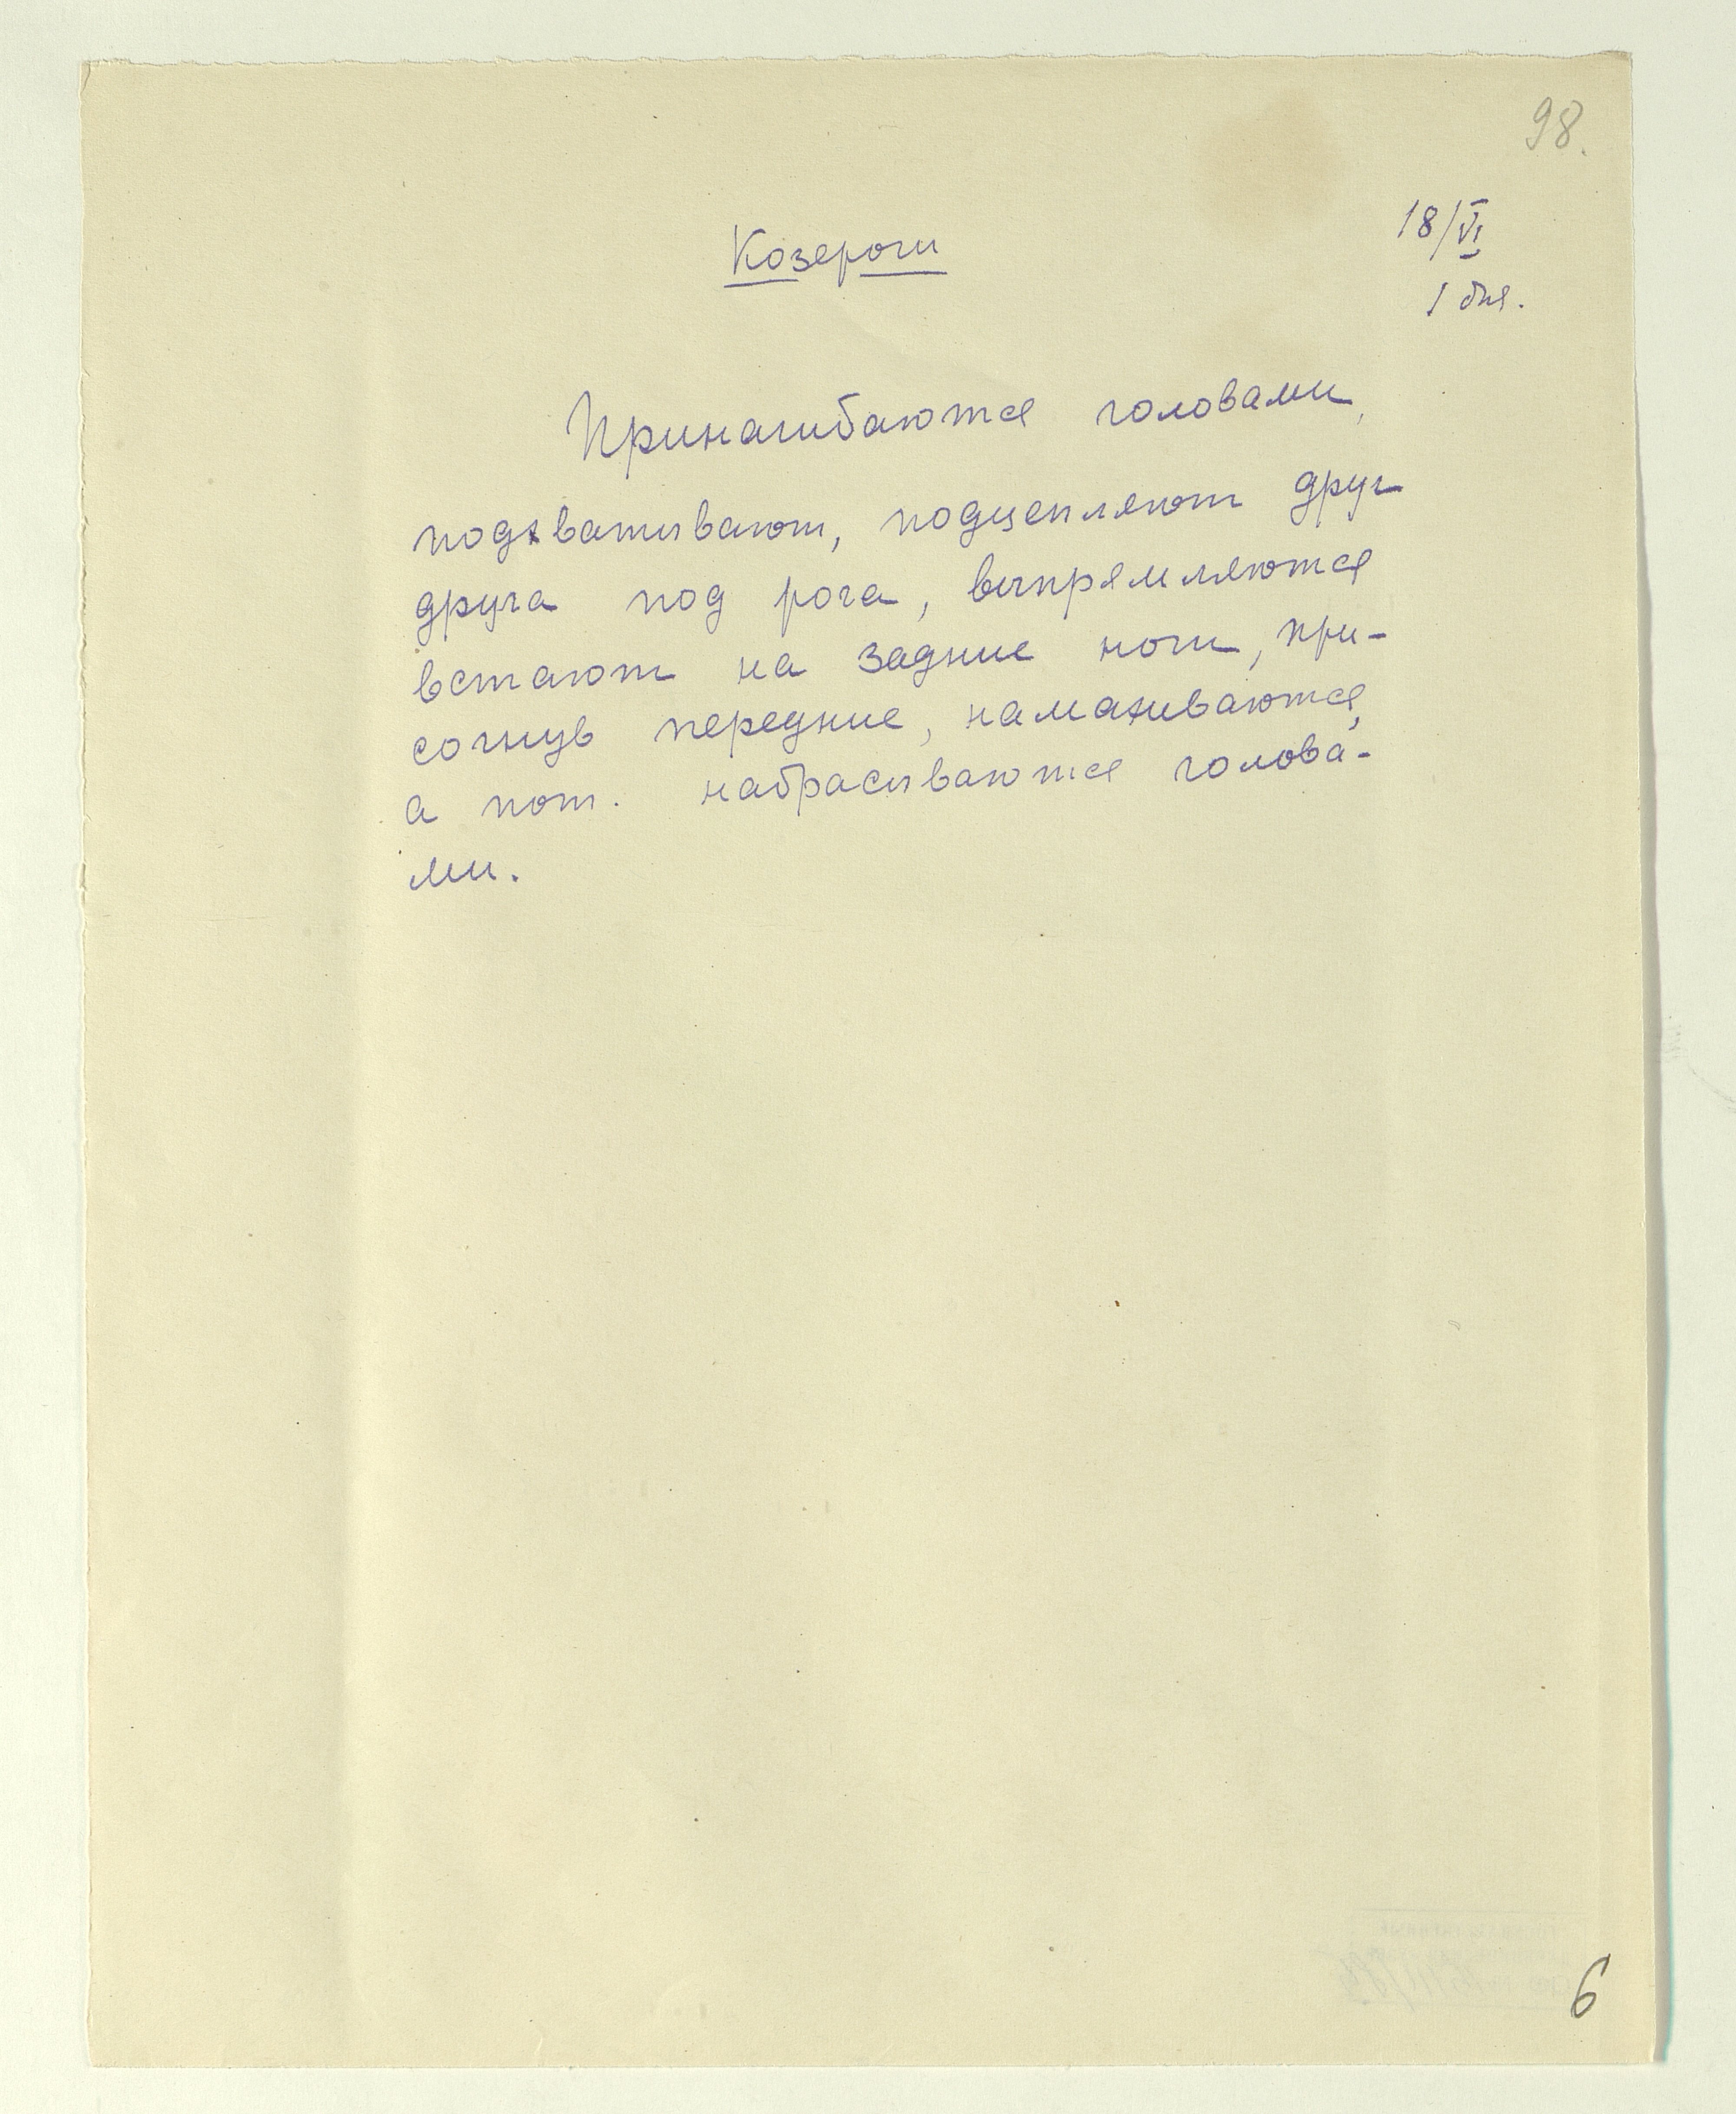 98.
18/VI
1 дня.
Козероги
Принагибаются головами,
подхватывают, подцепляют друг
друга под рога, выпрямляются
встают на задние ноги, при-
согнув передние, намахиваются,
а пот. набрасываются голова-
ми.
6